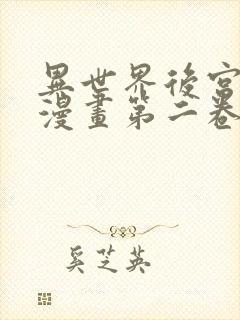 異世界後宮
漫畫第二卷
奚芝英